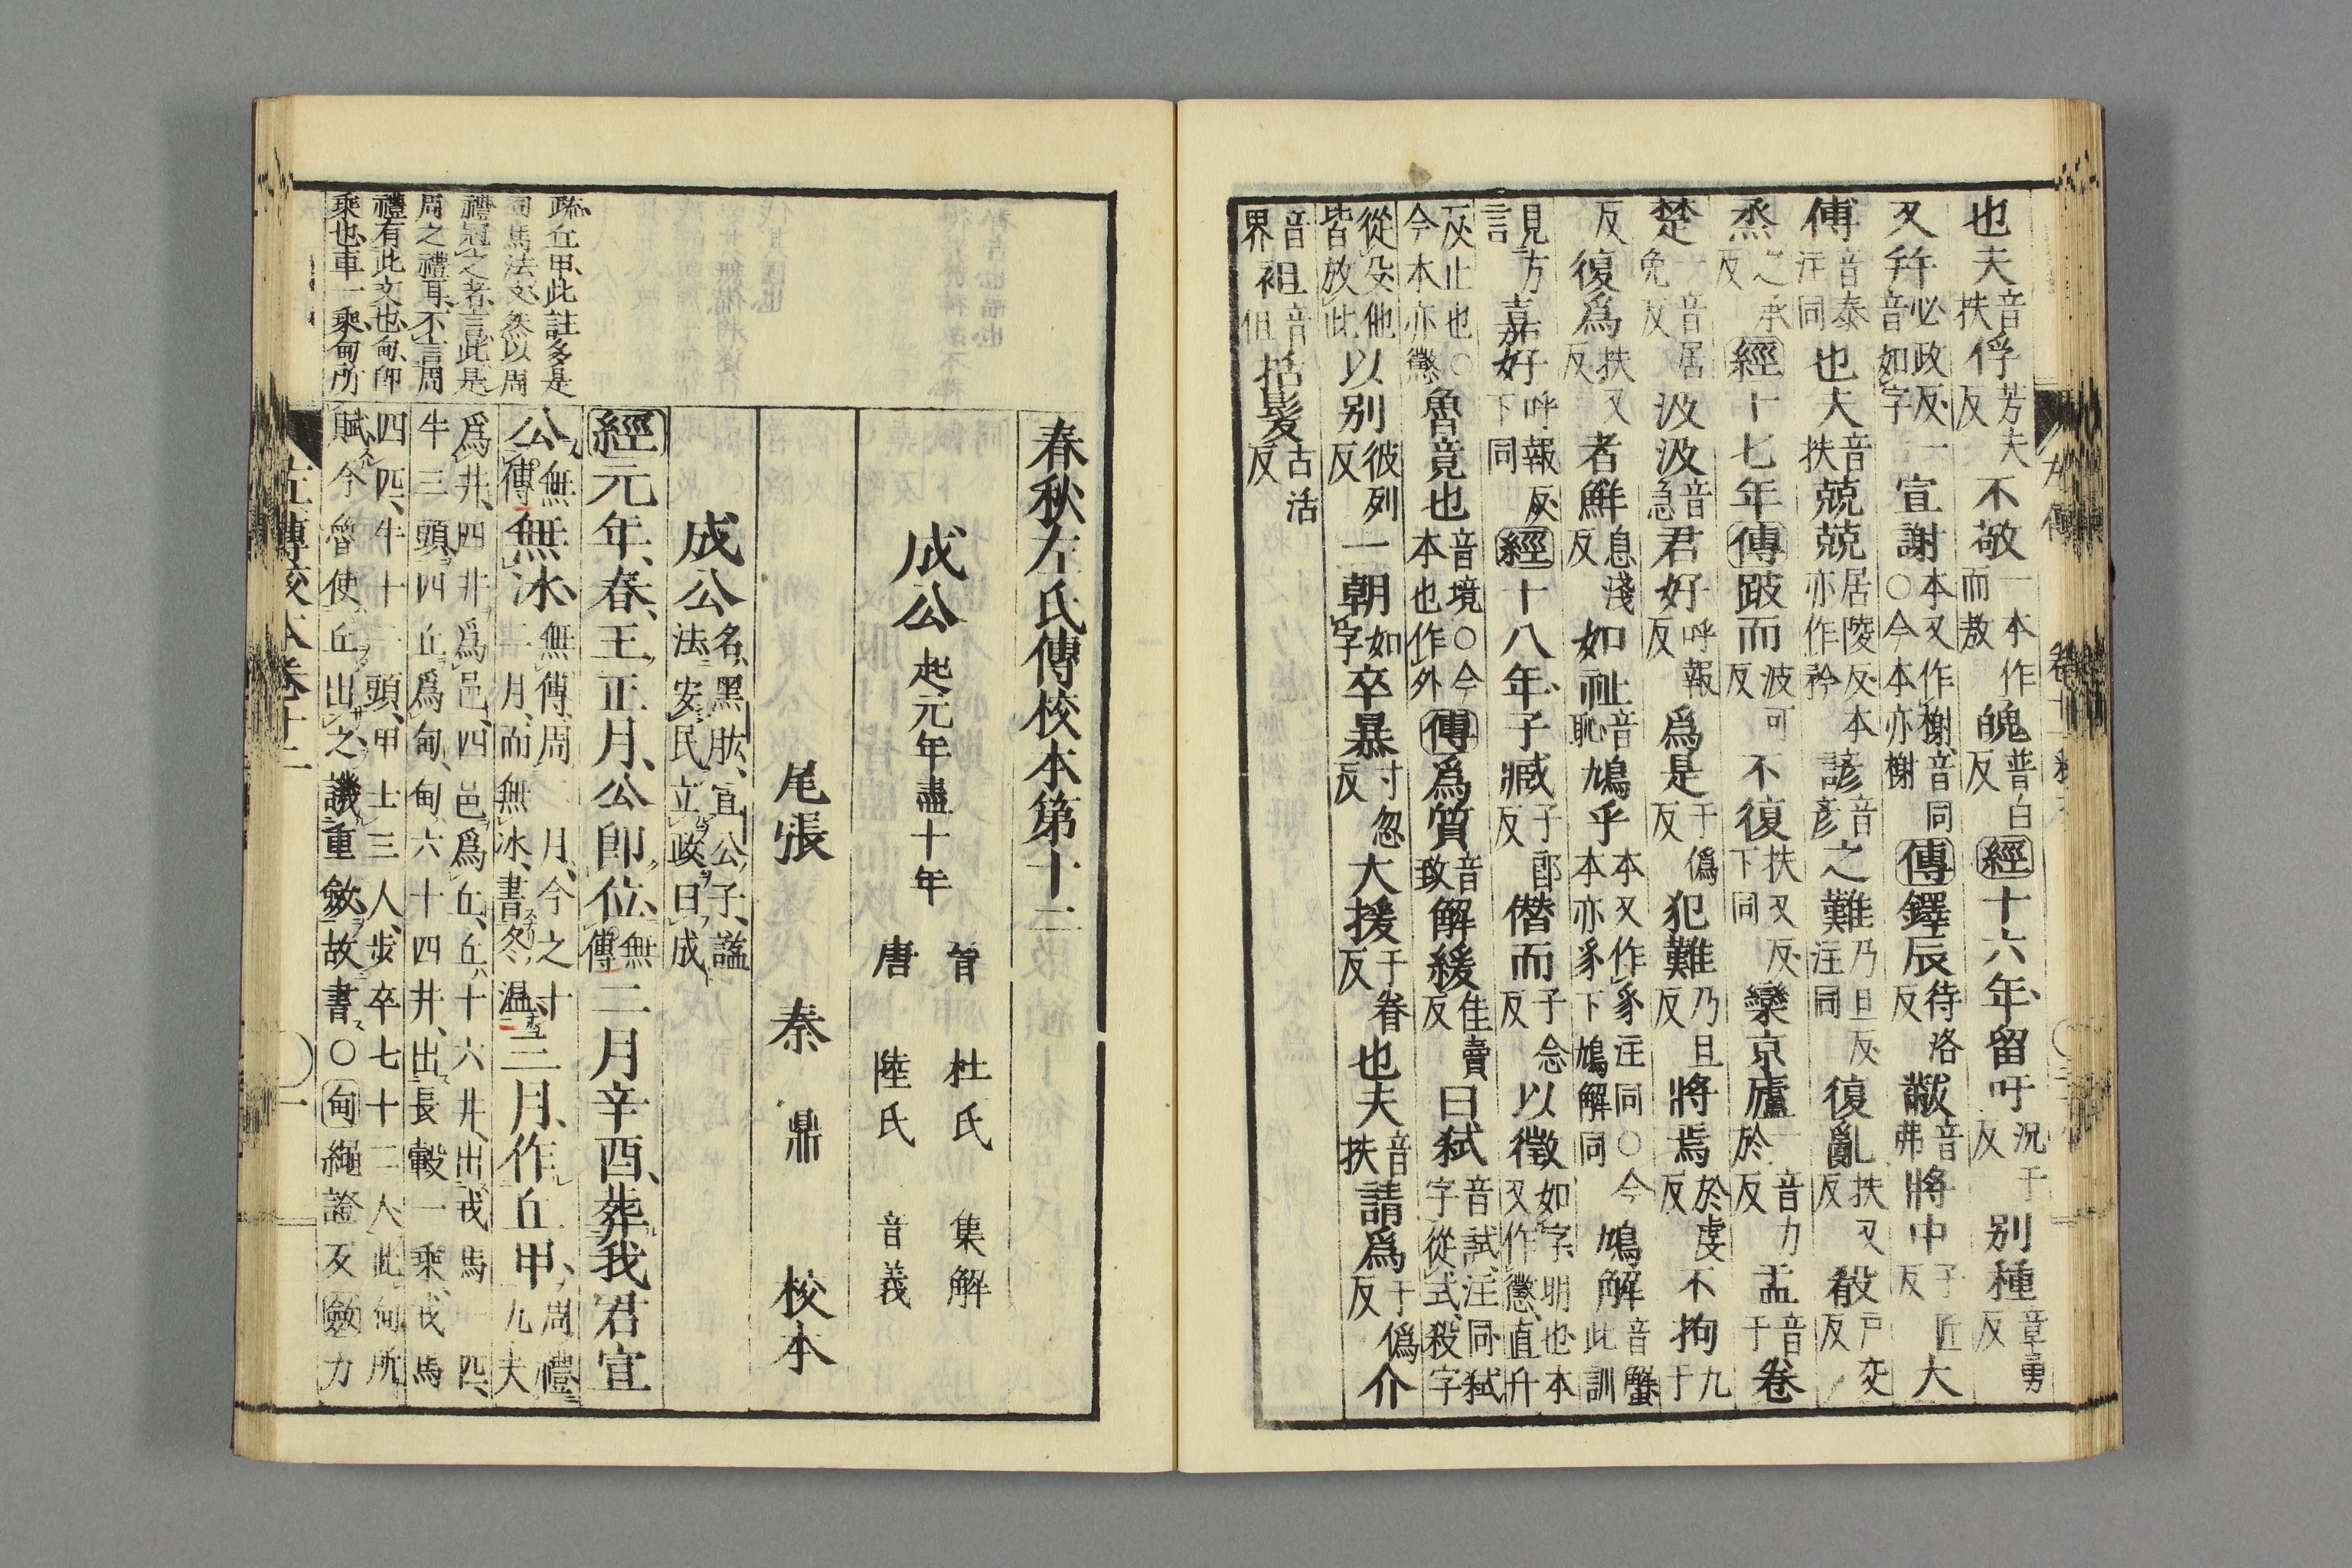 也夫音扶俘芳夫反不敬一本作而敖魄普白反經十六年留吁況于反別種章勇反
又幷必政反一音如字宣謝本又作榭音同○今本亦榭傳鐸辰待洛反黻音弗將中子匠反大
傅音泰注同也夫音扶兢兢居陵反本亦作矜諺音彥之難乃旦反注同復亂扶又反殽戶交反
烝之承反經十七年傳跛而波可反不復扶又反下同欒京廬音力於反盂音于卷
楚一音居免反汲汲音急君好呼報反爲是于僞反犯難乃旦反將焉於虔反不拘九于
反復爲扶又反者鮮息淺反如祉音恥鳩乎本又作豸注同○今本亦豸下鳩解同鳩解音蟹此訓
見方言嘉好呼報反下同經十八年子臧子郎反僭而子念反以徵如字明也本又作懲直升
反止也○今本亦懲魯竟也音境○今本也作外傳爲質音致解緩佳賣反曰弒音試注同弒字從式殺字
從殳他皆放此以別彼列反一朝如字卒暴寸忽反大援于眷反也夫音扶請爲于僞反介
音界袒音但括髮古活反
春秋左氏傳校本第十二
成公起元年盡十年
晉 杜氏 集解
唐 陸氏 音義
尾張 秦鼎 校本
成公名黑肱宣公子謚法安民立政曰成
經元年、春、王正月、公卽位、無傳二月辛酉、葬我君宣
公、無傳無冰、無傳周二月、今之十二月、而無冰、書冬溫、三月、作丘甲、周禮、九夫
爲井、四井爲邑、四邑爲丘、丘、十六井、出戎馬一匹、
牛三頭、四丘爲甸、甸、六十四井、出長轂一乘、戎馬
四匹、牛十二頭、甲士三人、步卒七十二人、此甸所
賦、今魯使丘出之、譏重斂、故書、○甸繩證反斂力
疏、丘甲、此註多是
司馬法文、然以周
禮冠之者、言此是
周之禮耳、不言周
禮有此文也、甸卽
乘也、車一乘甸所
左傳校本卷十二